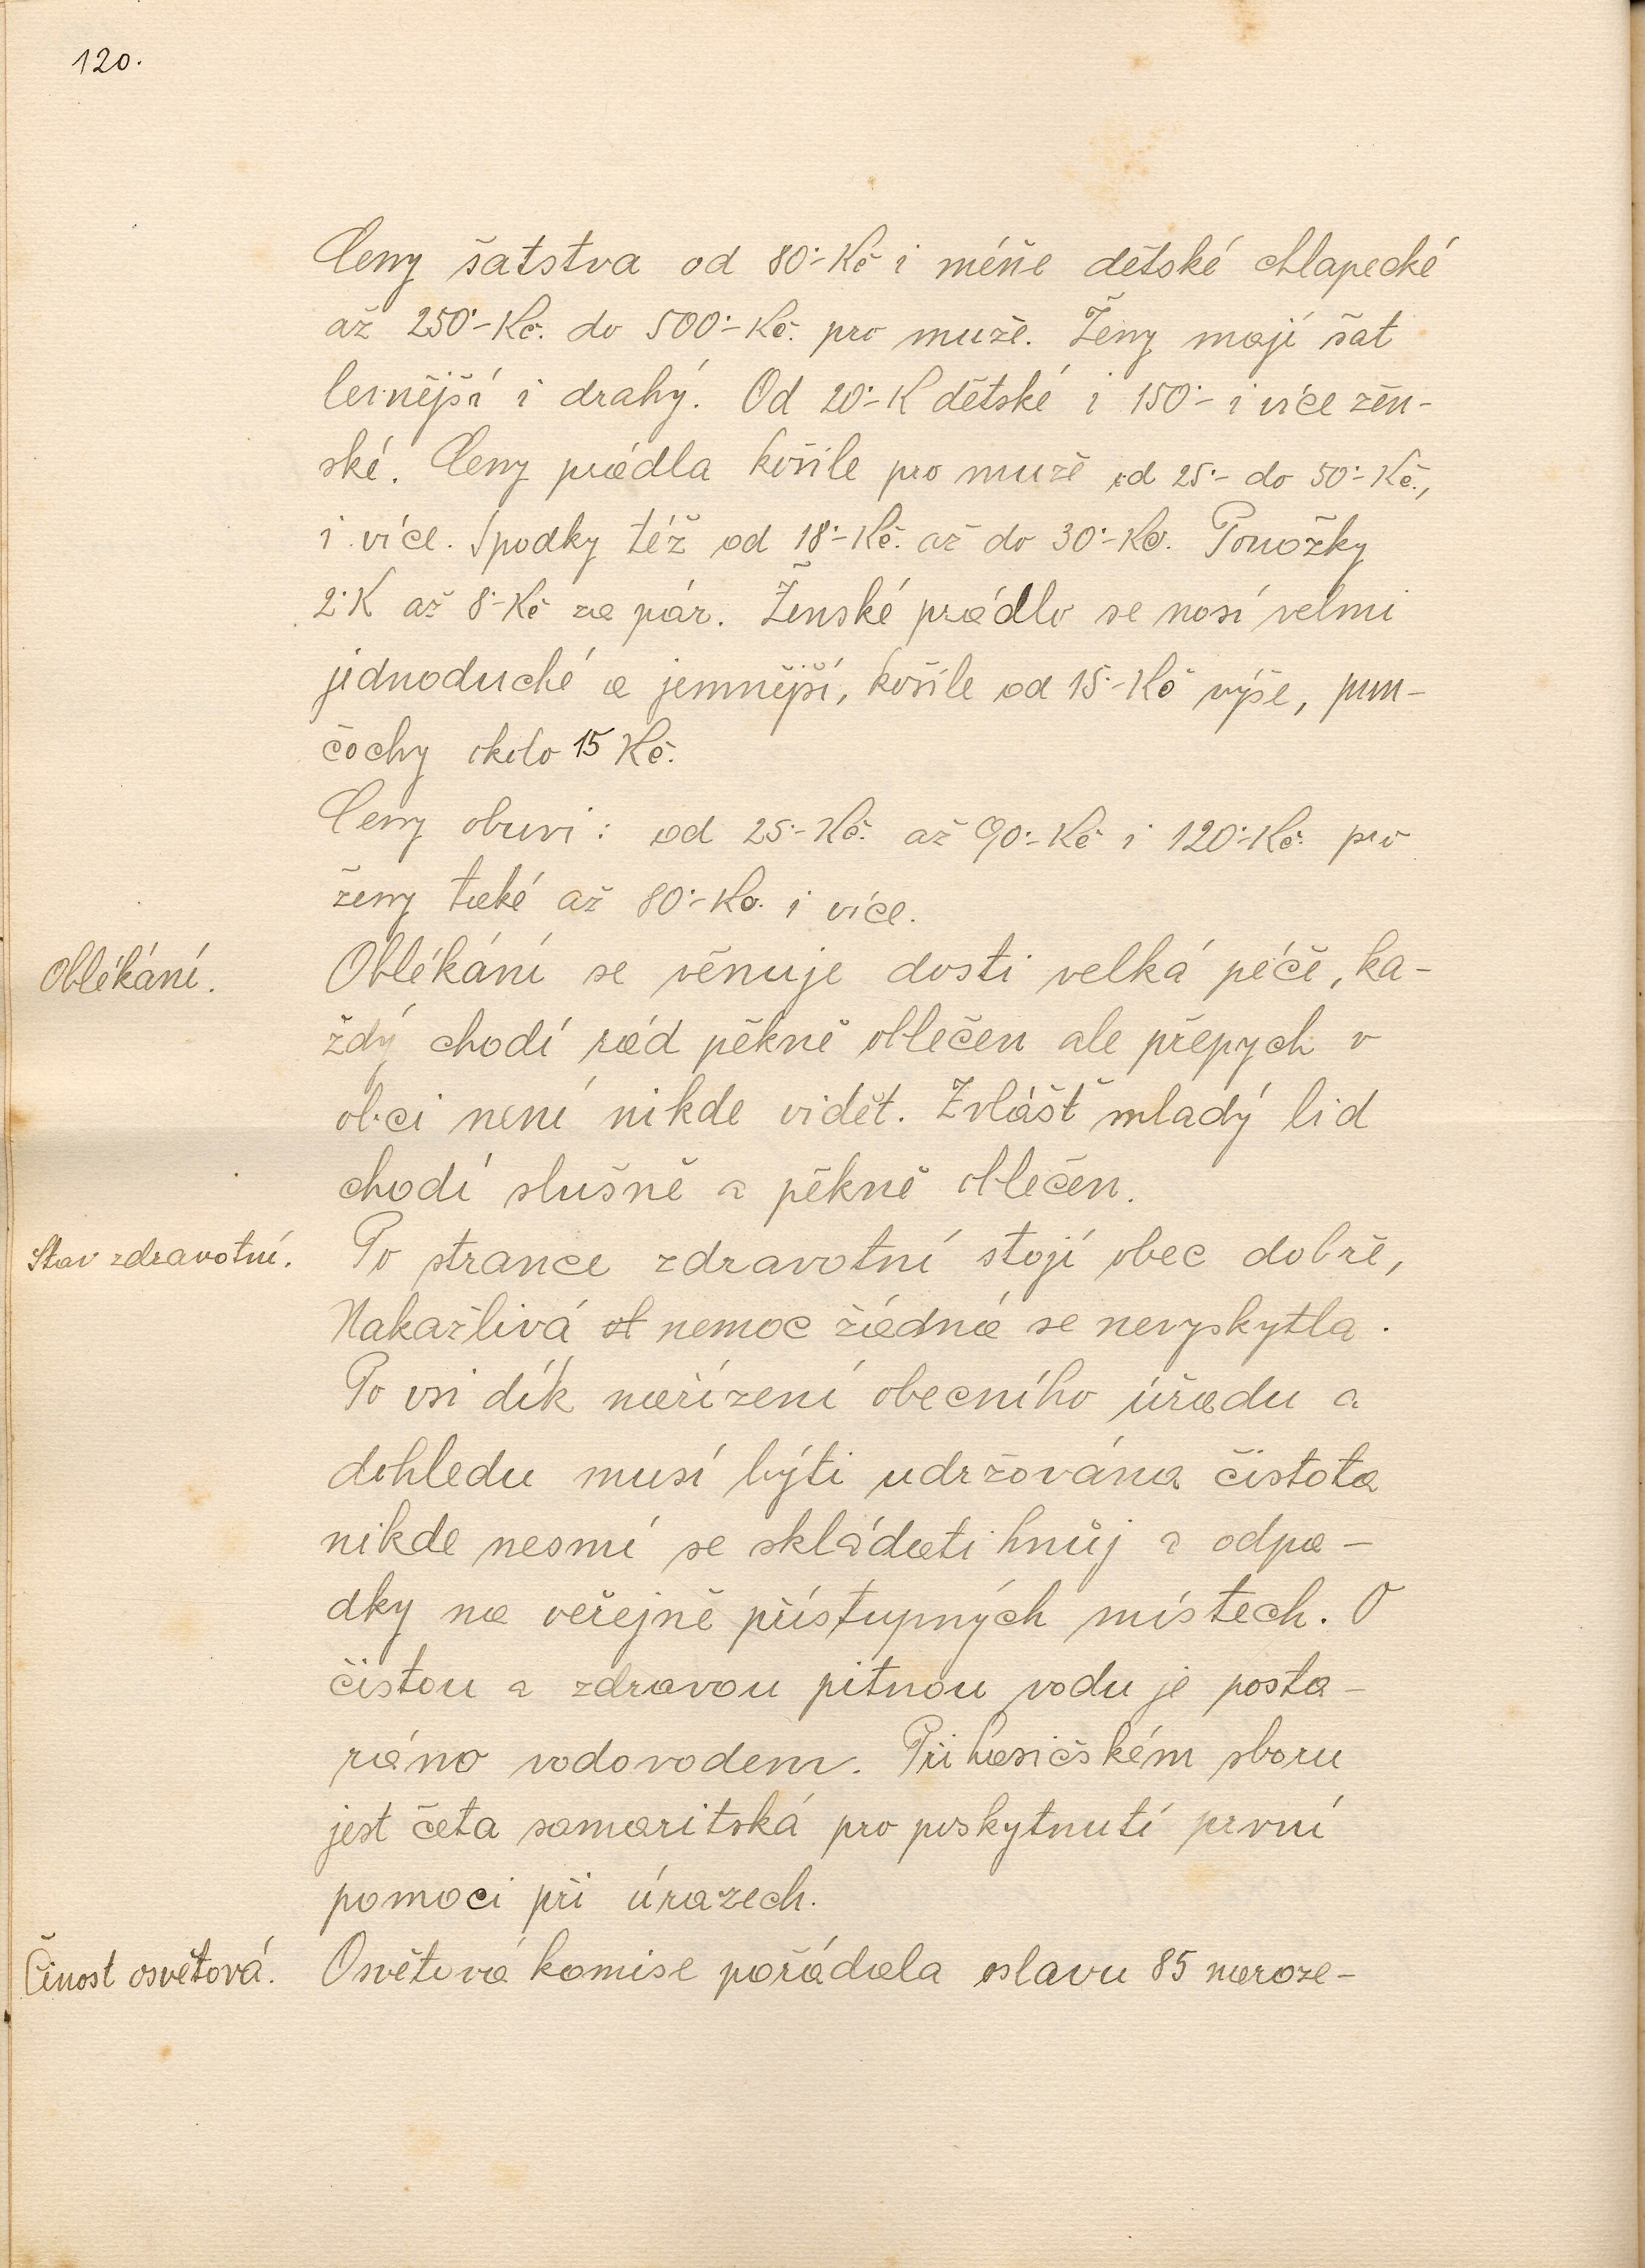 120.
Ceny šatstva od 80·- Kč i méňe dětské chlapecké
až 250·- Kč. do 500·- Kč. pro muže. Ženy mají šat
levnější i drahý. Od 20·- K dětské i 150·- i více žen-
ské. Ceny prádla košile pro muže od 25·- do 50·- Kč.,
i více. Spodky též od 18·- Kč. až do 30·- Kč. Ponožky
2·K až 8·- Kč za pár. Ženské prádlo se nosí velmi
jednoduché a jemnější, košile od 15·- Kč výše, pun-
čochy okolo 15 Kč.
Ceny obuvi: od 25·- Kč. až 90·- Kč i 120·- Kč. pro
ženy také až 80·- Kč. i více.
Oblékání.
Oblékání se věnuje dosti velká péče, ka-
ždý chodí rád pěkně oblečen ale přepych v
obci není nikde vidět. Zvlášť mladý lid
chodí slušně a pěkně oblečen.
Stav zdravotní.
Po strance zdravotní stojí obec dobře,
Nakažlivá nemoc žádná se nevyskytla.
Po vsi dík nařízení obecního úřadu a
dohledu musí býti udržována čistota
nikde nesmí se skládati hnůj a odpa-
dky na veřejně přístupných místech. O
čistou a zdravou pitnou vodu je posta-
ráno vodovodem. Při hasičském sboru
jest četa samaritská pro poskytnutí první
pomoci při úrazech.
Činost osvětová.
Osvětová komise pořádala oslavu 85 naroze-